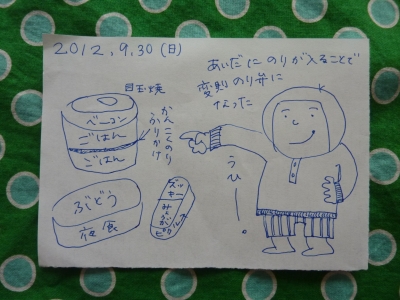 2012.9.30(日)
あいだに のりが入ることで
変則のり弁に
なった
目玉焼
ベーコン
ごはん
ごはん
かんこくのり
ふりかけ
うひー。
ぶどう
夜食
ズッキー
みょうが
ピクルス